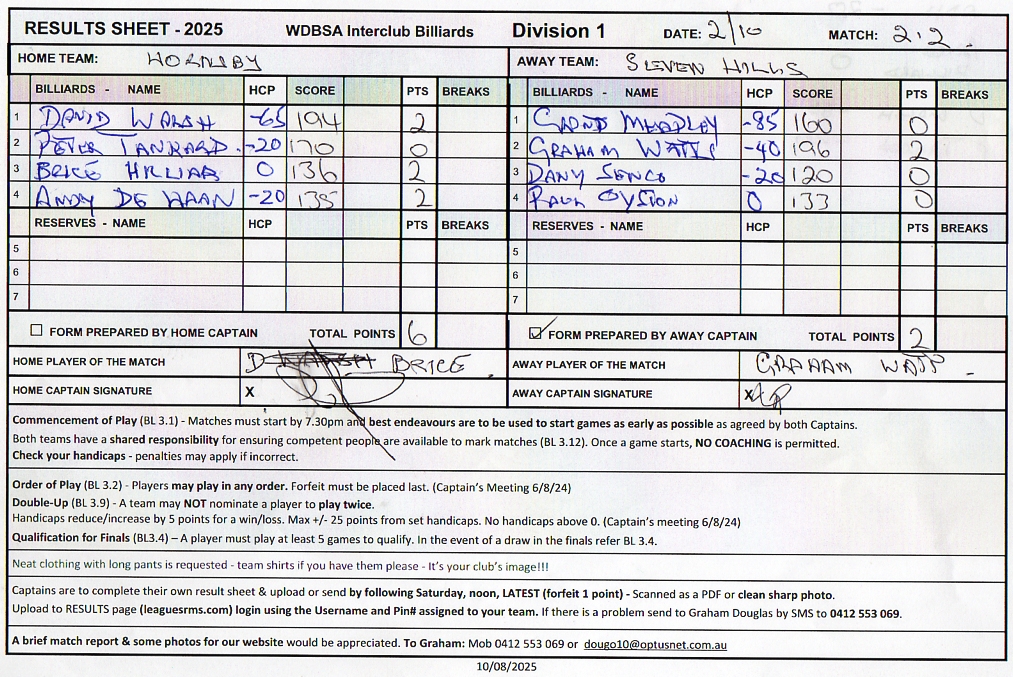 RESULTS SHEET - 2025 WDBSA Interclub Billiards Division 1 DATE: 2/10 MATCH: 2.2.
HOME TEAM: HORNSBY AWAY TEAM: SEVEN HILLS
BILLIARDS - NAME HCP SCORE PTS BREAKS BILLIARDS - NAME HCP SCORE PTS BREAKS
1 DAVID WALSH -65 194 2 1 -85 160 0
2 PETER TANKARD -20 170 0 2 GRAHAM WATTS -40 196 2
3 BRICE HILLIAR 0 136 2 3 DANY -20 120 0
4 ANDY DE HAAN -20 138 2 4 PAUL OYSTON 0 133 0
RESERVES - NAME HCP PTS BREAKS RESERVES - NAME HCP PTS BREAKS
5 5
6 6
7 7
☐ FORM PREPARED BY HOME CAPTAIN TOTAL POINTS 6 ☑ FORM PREPARED BY AWAY CAPTAIN TOTAL POINTS 2
HOME PLAYER OF THE MATCH D WALSH BRICE. AWAY PLAYER OF THE MATCH GRAHAM WATT -
HOME CAPTAIN SIGNATURE X AWAY CAPTAIN SIGNATURE X
Commencement of Play (BL 3.1) - Matches must start by 7.30pm and best endeavours are to be used to start games as early as possible as agreed by both Captains.
Both teams have a shared responsibility for ensuring competent people are available to mark matches (BL 3.12). Once a game starts, NO COACHING is permitted.
Check your handicaps - penalties may apply if incorrect.
Order of Play (BL 3.2) - Players may play in any order. Forfeit must be placed last. (Captain's Meeting 6/8/24)
Double-Up (BL 3.9) - A team may NOT nominate a player to play twice.
Handicaps reduce/increase by 5 points for a win/loss. Max +/- 25 points from set handicaps. No handicaps above 0. (Captain's meeting 6/8/24)
Qualification for Finals (BL3.4) – A player must play at least 5 games to qualify. In the event of a draw in the finals refer BL 3.4.
Neat clothing with long pants is requested - team shirts if you have them please - It's your club's image!!!
Captains are to complete their own result sheet & upload or send by following Saturday, noon, LATEST (forfeit 1 point) - Scanned as a PDF or clean sharp photo.
Upload to RESULTS page (leaguesrms.com) login using the Username and Pin# assigned to your team. If there is a problem send to Graham Douglas by SMS to 0412 553 069.
A brief match report & some photos for our website would be appreciated. To Graham: Mob 0412 553 069 or dougo10@optusnet.com.au
10/08/2025